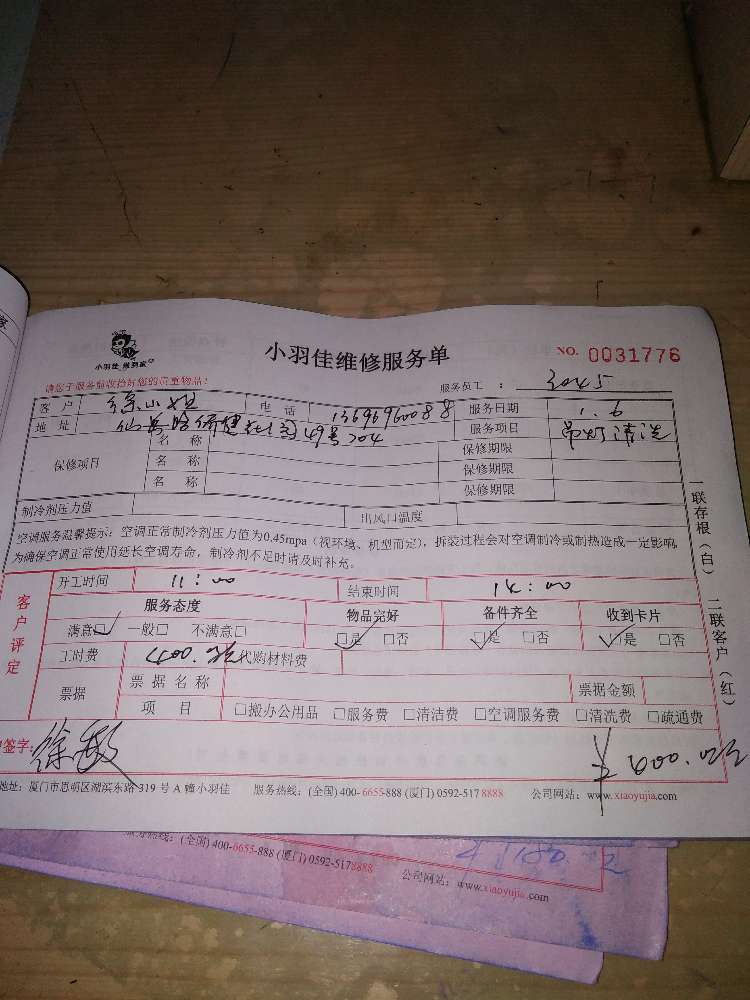 小羽佳 做到家
小羽佳维修服务单
NO. 0031776
请您于服务前收拾好您的贵重物品：
服务员工： 3045
客户 徐小姐 电话 13696960088 服务日期 1.6
地址 204 服务项目 吊灯清洗
保修项目 名称 保修期限
名称 保修期限
名称 保修期限
制冷剂压力值 出风口温度
空调服务温馨提示：空调正常制冷剂压力值为0.45mpa（视环境、机型而定），拆装过程会对空调制冷或制热造成一定影响，
为确保空调正常使用延长空调寿命，制冷剂不足时请及时补充。
客户评定
开工时间 11:00 结束时间 14:00
服务态度 物品完好 备件齐全 收到卡片
满意□ 一般□ 不满意□ □是 □否 □是 □否 □是 □否
工时费 代购材料费
票据 票据名称 票据金额
项目 □搬办公用品 □服务费 □清洁费 □空调服务费 □清洗费 □疏通费
签字： 徐敏 ¥600.00元
地址：厦门市思明区湖滨东路319号A幢小羽佳 服务热线：(全国) 400-6655-888 (厦门) 0592-5178888 公司网站：www.xiaoyujia.com
一联存根（白） 二联客户（红）
服务热线：(全国) 400-6655-888 (厦门) 0592-5178888 公司网站：www.xiaoyujia.com